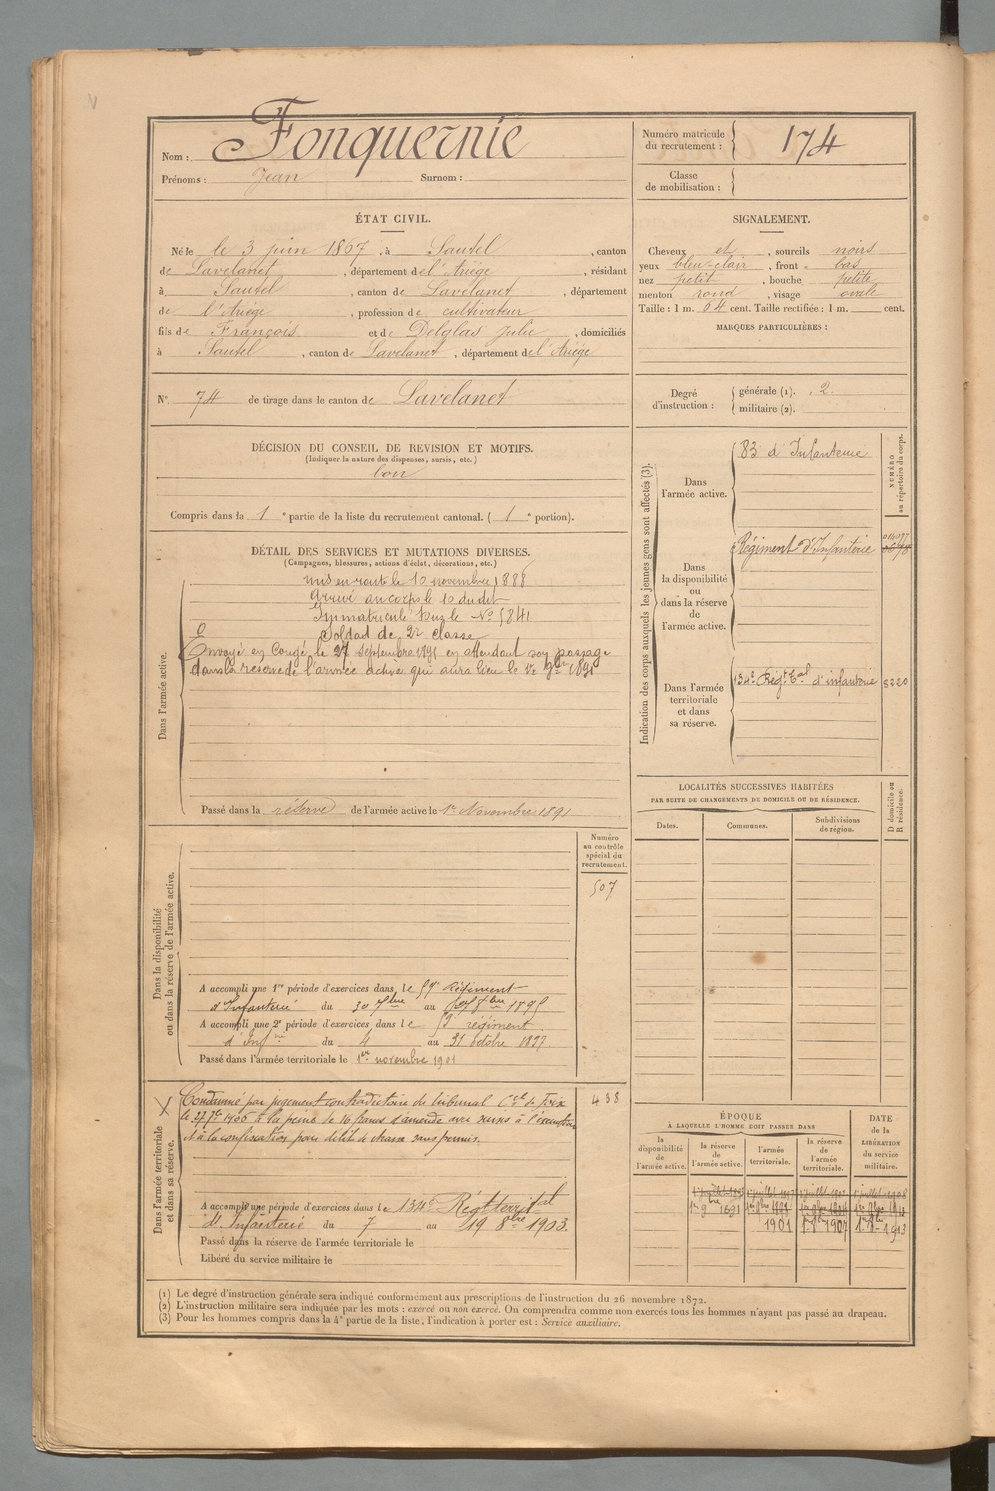 Nom : Fonquernie
Prénoms : Jean Surnom :
Numéro matricule du recrutement : 174
Classe de mobilisation :
ÉTAT CIVIL.
Né le le 3 juin 1867, à Sautel, canton
de Lavelanet, département de l'Ariège, résidant
à Sautel, canton de Lavelanet, département
de l'Ariège, profession de cultivateur
fils de François et de Delglas Julie, domiciliés
à Sautel, canton de Lavelanet, département de l'Ariège
SIGNALEMENT.
Cheveux et, sourcils noirs
yeux bleu-clair, front bas
nez petit, bouche petite
menton rond, visage ovale
Taille : 1 m. 64 cent. Taille rectifiée : 1 m. cent.
MARQUES PARTICULIÈRES :
N° 74 de tirage dans le canton de Lavelanet
Degré d'instruction : générale (1). 2.
militaire (2).
DÉCISION DU CONSEIL DE REVISION ET MOTIFS.
(Indiquer la nature des dispenses, sursis, etc.)
bon
Compris dans la 1e partie de la liste du recrutement cantonal. (1e portion).
DÉTAIL DES SERVICES ET MUTATIONS DIVERSES.
(Campagnes, blessures, actions d'éclat, décorations, etc.)
Dans l'armée active.
mis en route le 10 novembre 1888
Arrivé au corps le 10 dudit
Immatriculé sous le N° 5841
Soldat de 2e classe
Envoyé en Congé le 27 septembre 1891 en attendant son passage
dans la réserve de l'armée active qui aura lieu le 1er 9bre 1891
Passé dans la réserve de l'armée active le 1er Novembre 1891
Indication des corps auxquels les jeunes gens sont affectés (3).
NUMÉRO au répertoire du corps.
Dans l'armée active.
83 d'Infanterie
Dans la disponibilité ou dans la réserve de l'armée active.
Régiment d'Infanterie
Dans l'armée territoriale et dans sa réserve.
134e Régt Tal d'infanterie 5220
LOCALITÉS SUCCESSIVES HABITÉES
PAR SUITE DE CHANGEMENTS DE DOMICILE OU DE RÉSIDENCE.
Dates. Communes. Subdivisions de région. D domicile ou R résidence.
Dans la disponibilité ou dans la réserve de l'armée active.
Numéro au contrôle spécial du recrutement.
507
A accompli une 1re période d'exercices dans le 59e Régiment
d'Infanterie du 30 7bre au 8bre 1895
A accompli une 2e période d'exercices dans le régiment
d'Infrie du 4 au 31 octobre 1897
Passé dans l'armée territoriale le 1er novembre 1901
Dans l'armée territoriale et dans sa réserve.
438
Condamné par jugement contradictoire du tribunal Cel de Foix
le 27 7bre 1906 à la peine de 16 francs d'amende avec sursis à l'exécution
et à la confiscation pour délit de chasse sans permis.
A accompli une période d'exercices dans le 134e Régt territal
d'Infanterie du 7 au 19 8bre 1903.
Passé dans la réserve de l'armée territoriale le
Libéré du service militaire le
ÉPOQUE
À LAQUELLE L'HOMME DOIT PASSER DANS
la disponibilité de l'armée active. la réserve de l'armée active. l'armée territoriale. la réserve de l'armée territoriale.
DATE de la LIBÉRATION du service militaire.
1er 9bre 1891 1901 1er 9bre 1907 1er 9bre 1913
(1) Le degré d'instruction générale sera indiqué conformément aux prescriptions de l'instruction du 26 novembre 1872.
(2) L'instruction militaire sera indiquée par les mots : exercé ou non exercé. On comprendra comme non exercés tous les hommes n'ayant pas passé au drapeau.
(3) Pour les hommes compris dans la 4e partie de la liste, l'indication à porter est : Service auxiliaire.